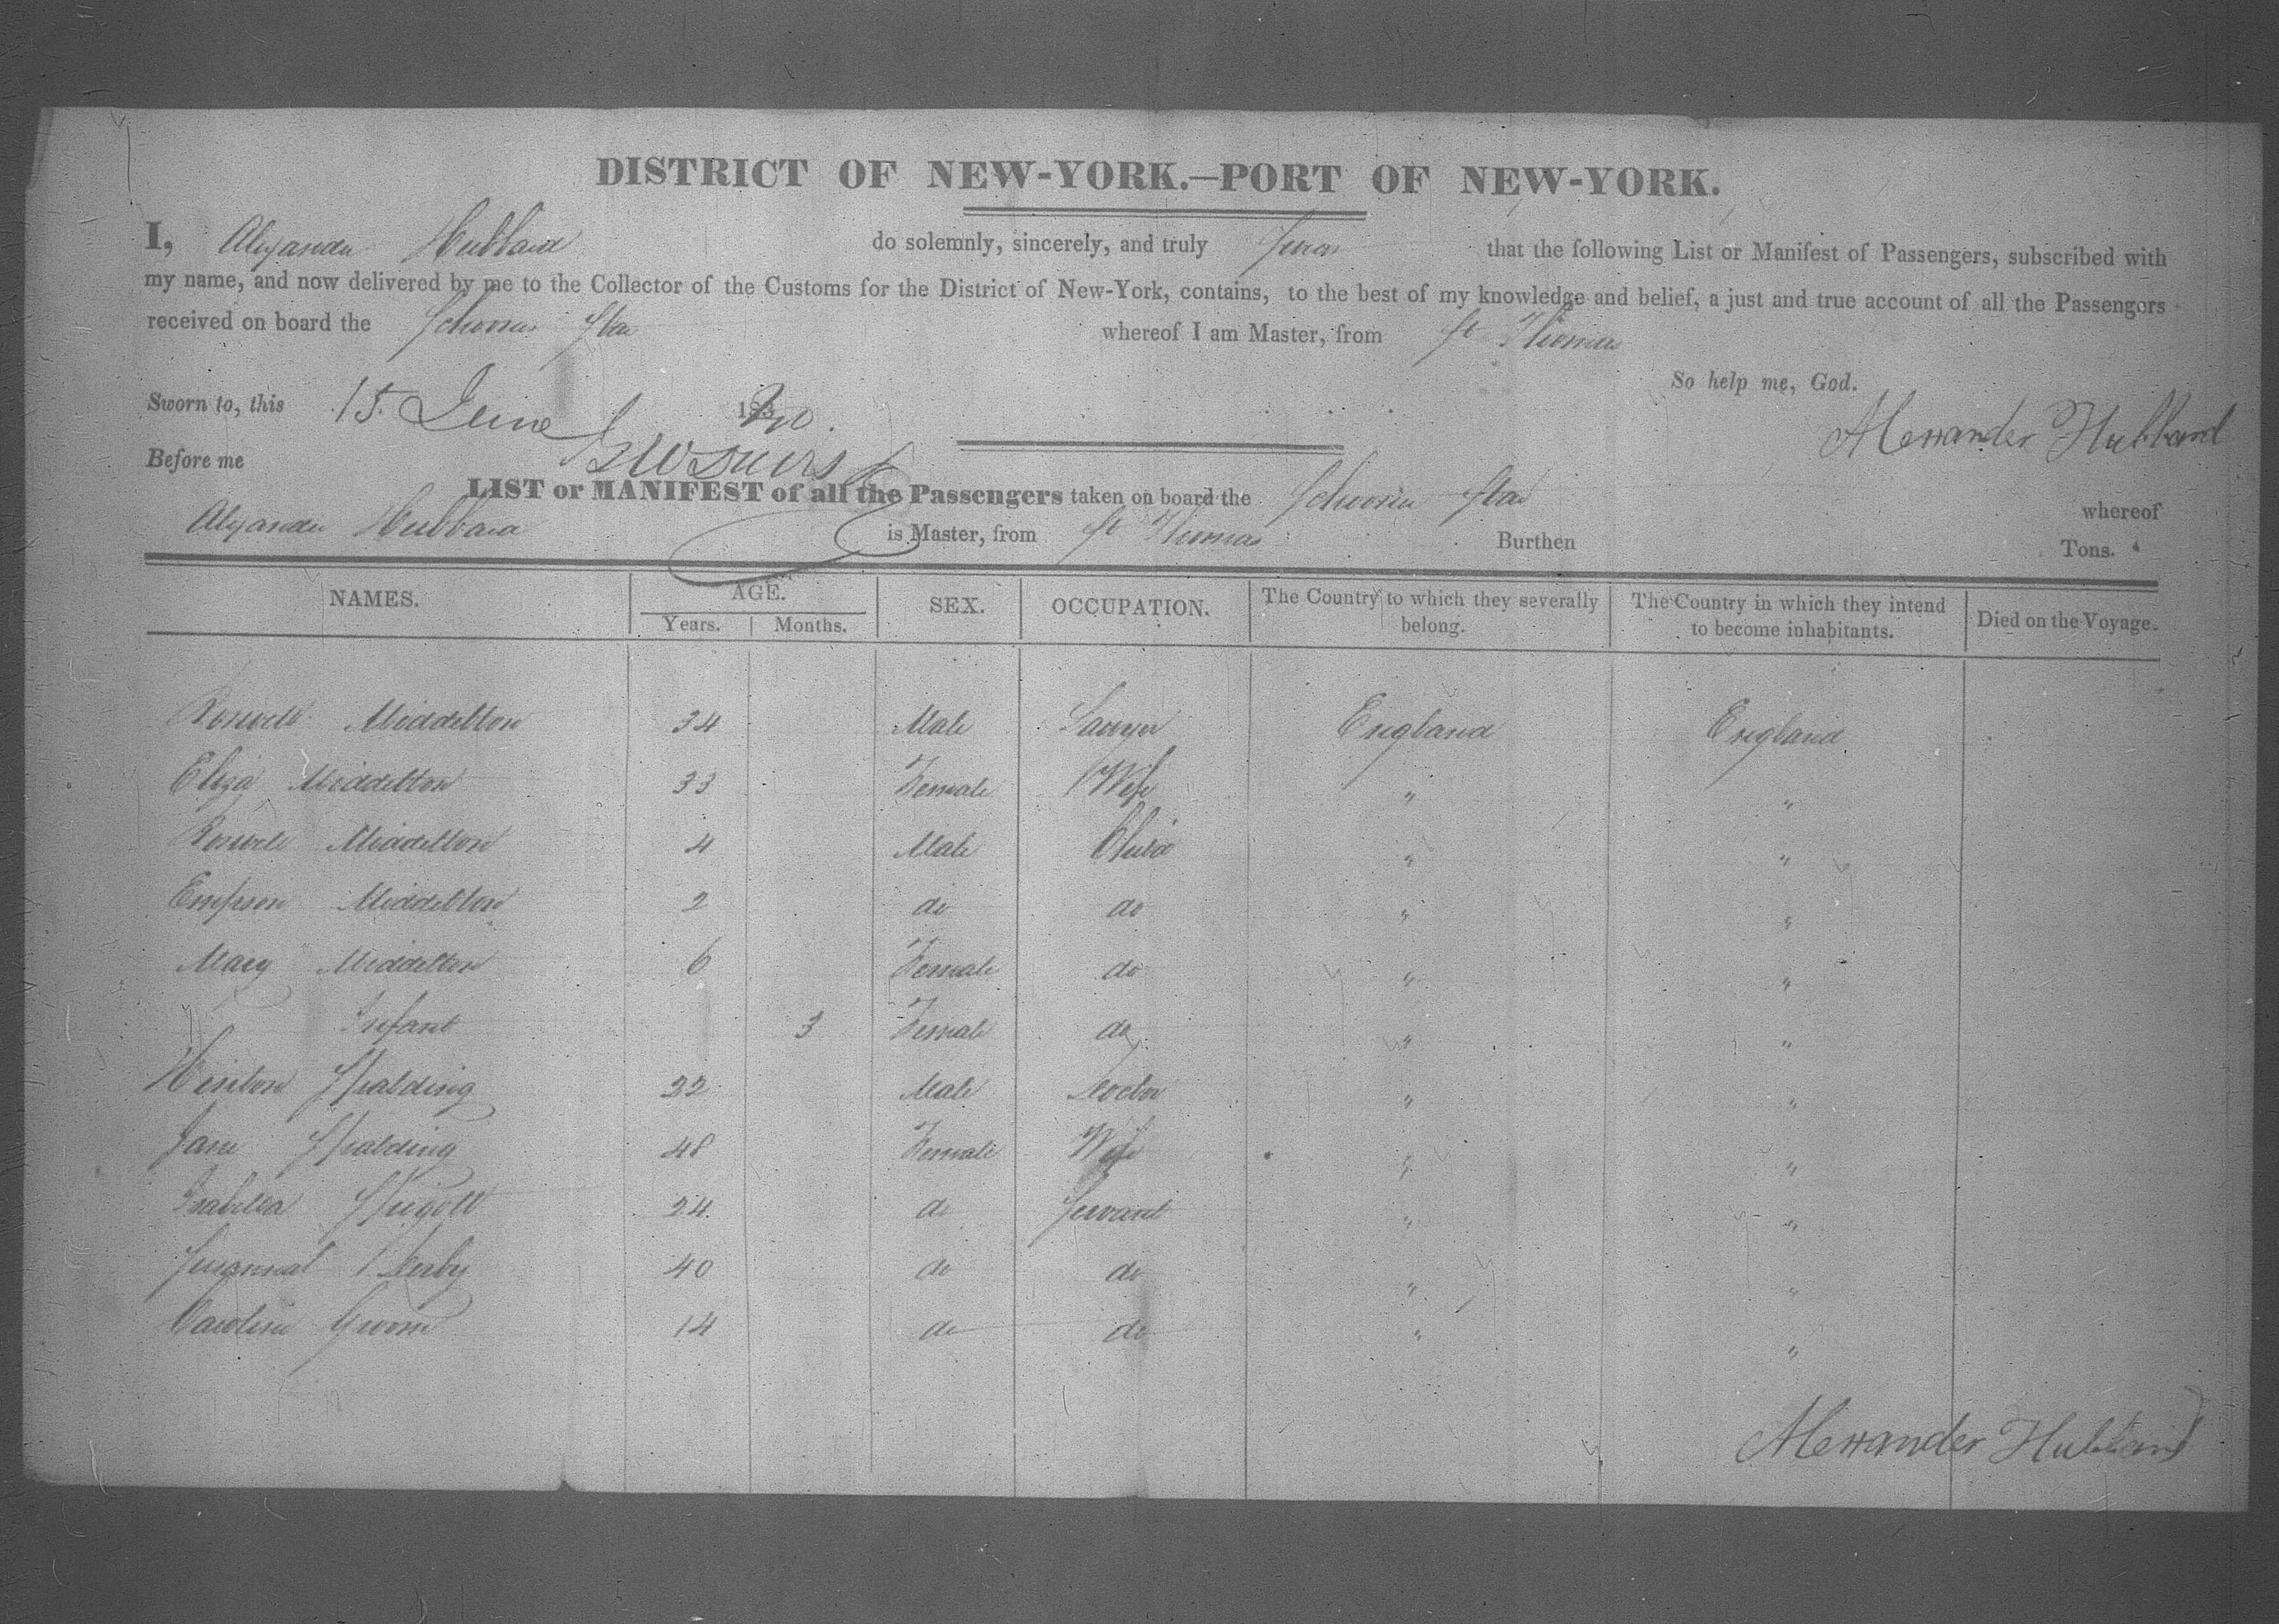 DISTRICT OF NEW-YORK.—PORT OF NEW-YORK.
I, Alexander Hubbard do solemnly, sincerely, and truly Swear that the following List or Manifest of Passengers, subscribed with
my name, and now delivered by me to the Collector of the Customs for the District of New-York, contains, to the best of my knowledge and belief, a just and true account of all the Passengers
received on board the Schooner Star whereof I am Master, from St Thomas
So help me, God.
Sworn to, this 15 June 1840. Alexander Hubbard
Before me
LIST or MANIFEST of all the Passengers taken on board the Schooner Star whereof
Alexander Hubbard is Master, from St Thomas Burthen Tons.
NAMES. AGE. SEX. OCCUPATION. The Country to which they severally belong. The Country in which they intend to become inhabitants. Died on the Voyage.
Years. Months.
Middelton 34 Male Lawyer England England
Eliza Middelton 33 Female Wife " "
Middelton 4 Male Child " "
Empson Middelton 2 do do " "
Mary Middelton 6 Female do " "
Infant 3 Female do " "
Hinton Spalding 22 Male Doctor " "
Jane Spalding 48 Female Wife " "
Isabella 24 do Servant " "
40 do do " "
Caroline 14 do do " "
Alexander Hubbard